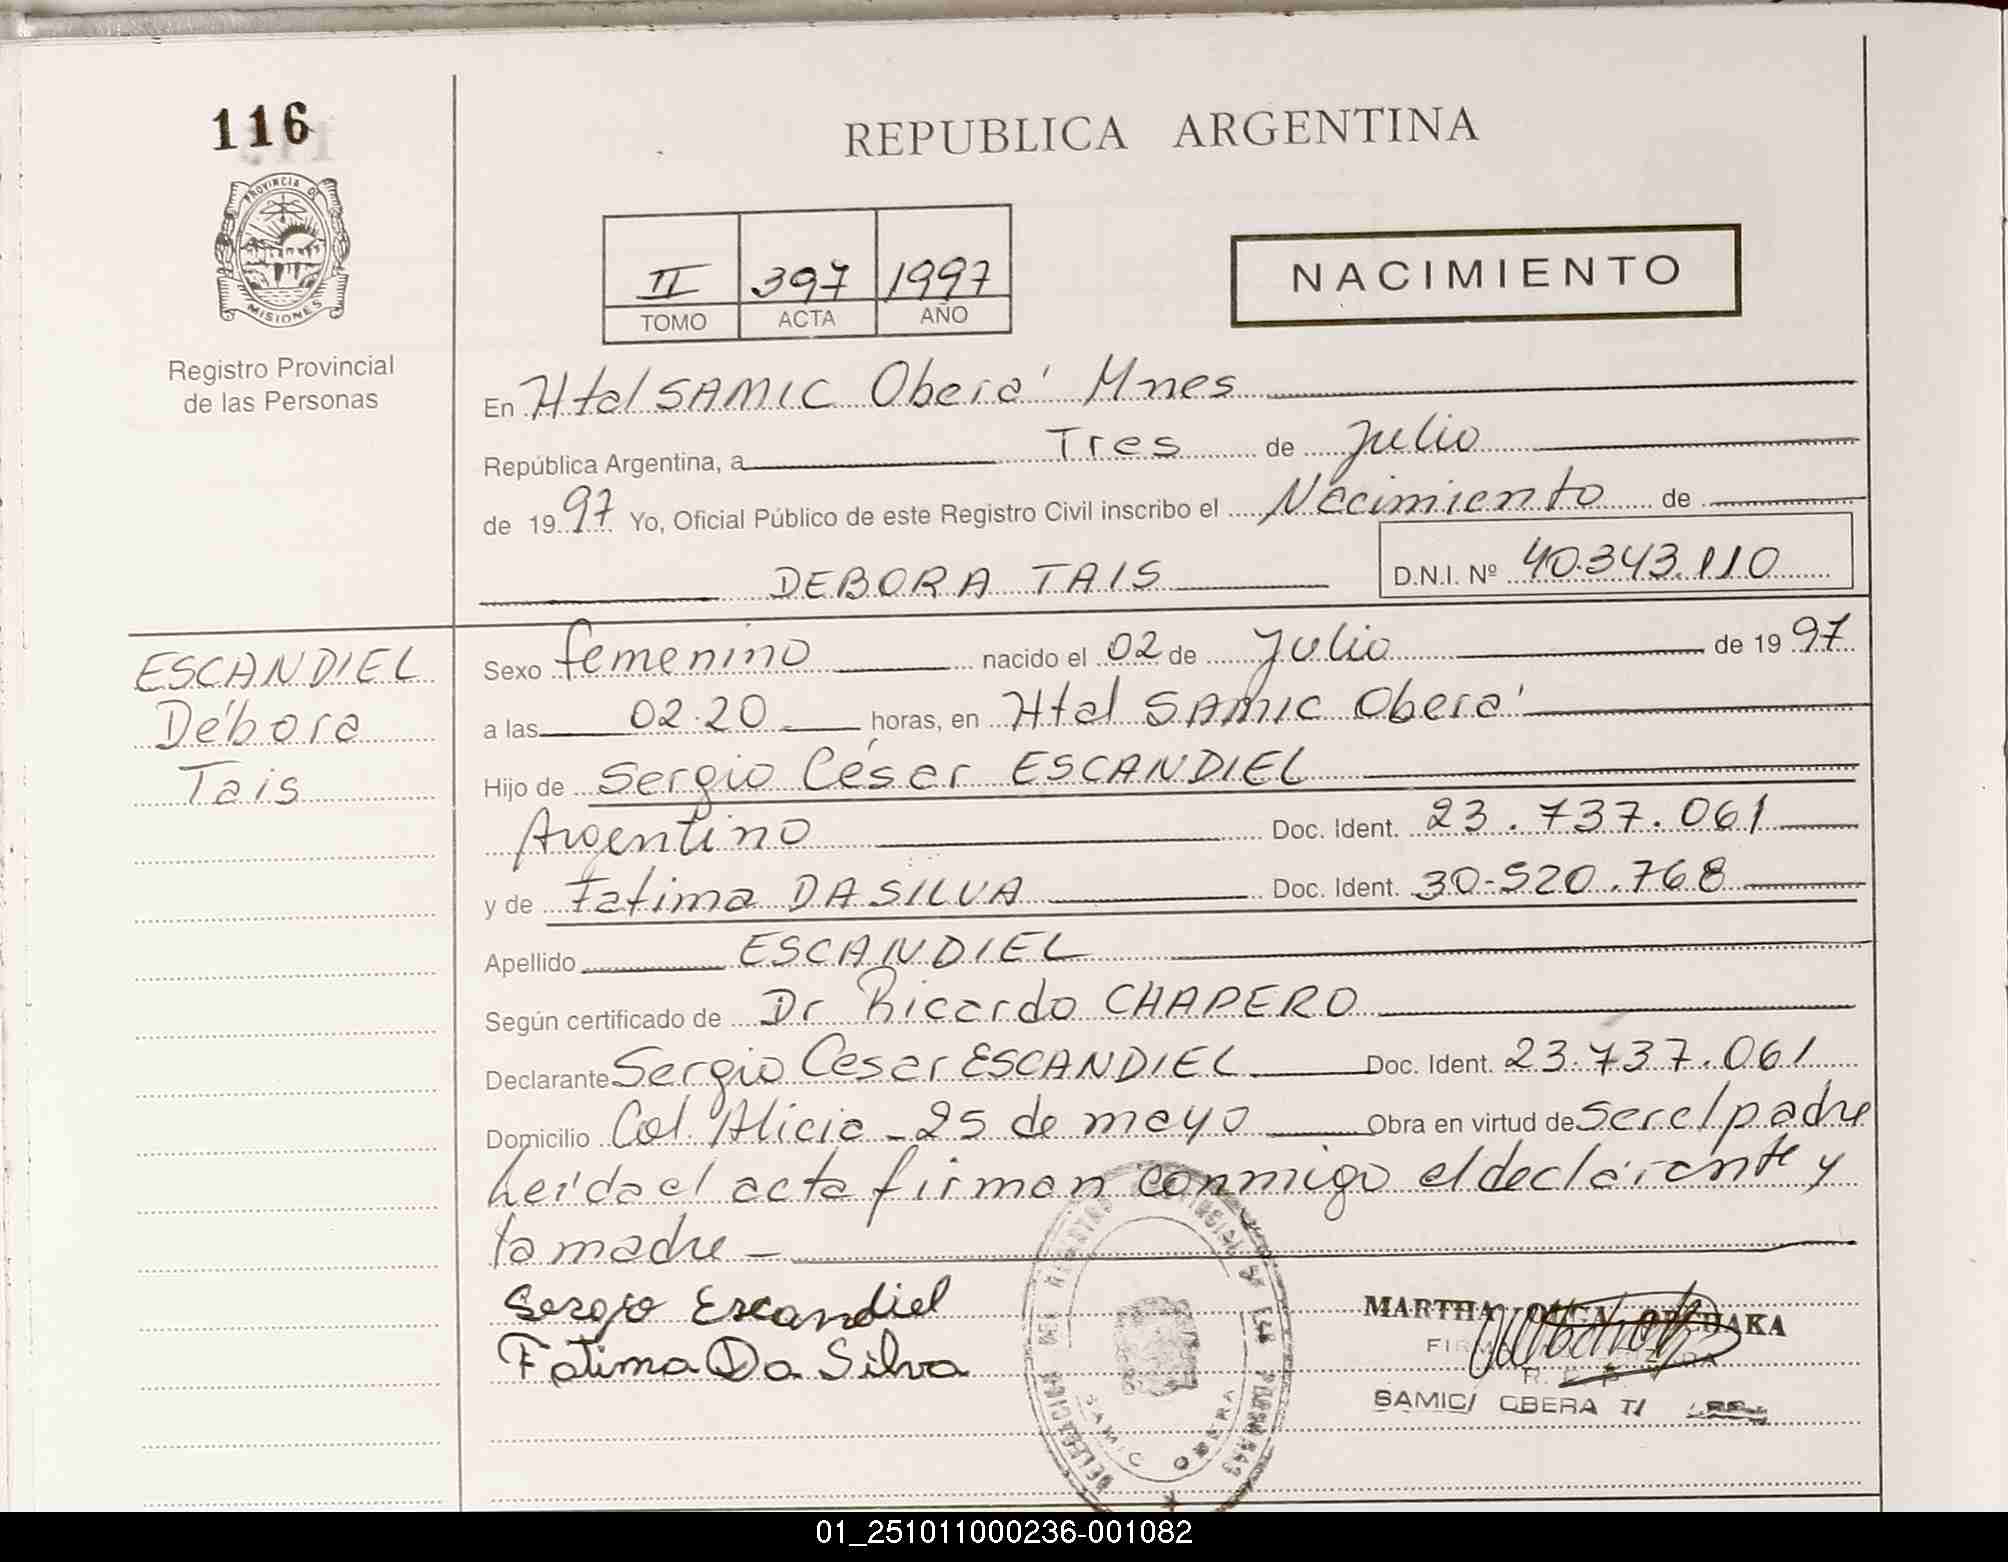 116
PROVINCIA DE
MISIONES
Registro Provincial
de las Personas
REPUBLICA ARGENTINA
II 397 1997
TOMO ACTA AÑO
NACIMIENTO
En Htal SAMIC Oberá Mnes
República Argentina, a Tres de Julio
de 1997 Yo, Oficial Público de este Registro Civil inscribo el Nacimiento de
DEBORA TAIS D.N.I. Nº 40.343.110
ESCANDIEL
Débora
Tais
Sexo femenino nacido el 02 de Julio de 1997
a las 02.20 horas, en Htal SAMIC Oberá
Hijo de Sergio César ESCANDIEL
Argentino Doc. Ident. 23.737.061
y de Fatima DA SILVA Doc. Ident. 30-520.768
Apellido ESCANDIEL
Según certificado de Dr Ricardo CHAPERO
Declarante Sergio Cesar ESCANDIEL Doc. Ident. 23.737.061
Domicilio Col. Alicia - 25 de mayo Obra en virtud de ser el padre
leída el acta firman conmigo el declarante y
la madre -
Sergio Escandiel
Fatima Da Silva
DELEGACION DEL REGISTRO PROVINCIAL DE LAS PERSONAS
SAMIC OBERA
MARTHA
SAMIC/ OBERA T/
01_251011000236-001082